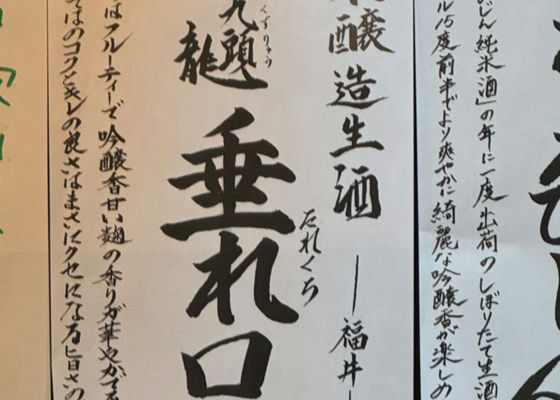 じん純米酒」の年に一度出荷のしぼりたて生酒
ル15度前半でより爽やかに綺麗な吟醸香が楽しめ
醸造生酒 ー福井ー
たれくち
九頭龍 垂れ口
くずりゅう
はフルーティーで吟醸香甘い麹の香りが華やかで
そばのコクとキレの良さはまさにクセになる旨さの